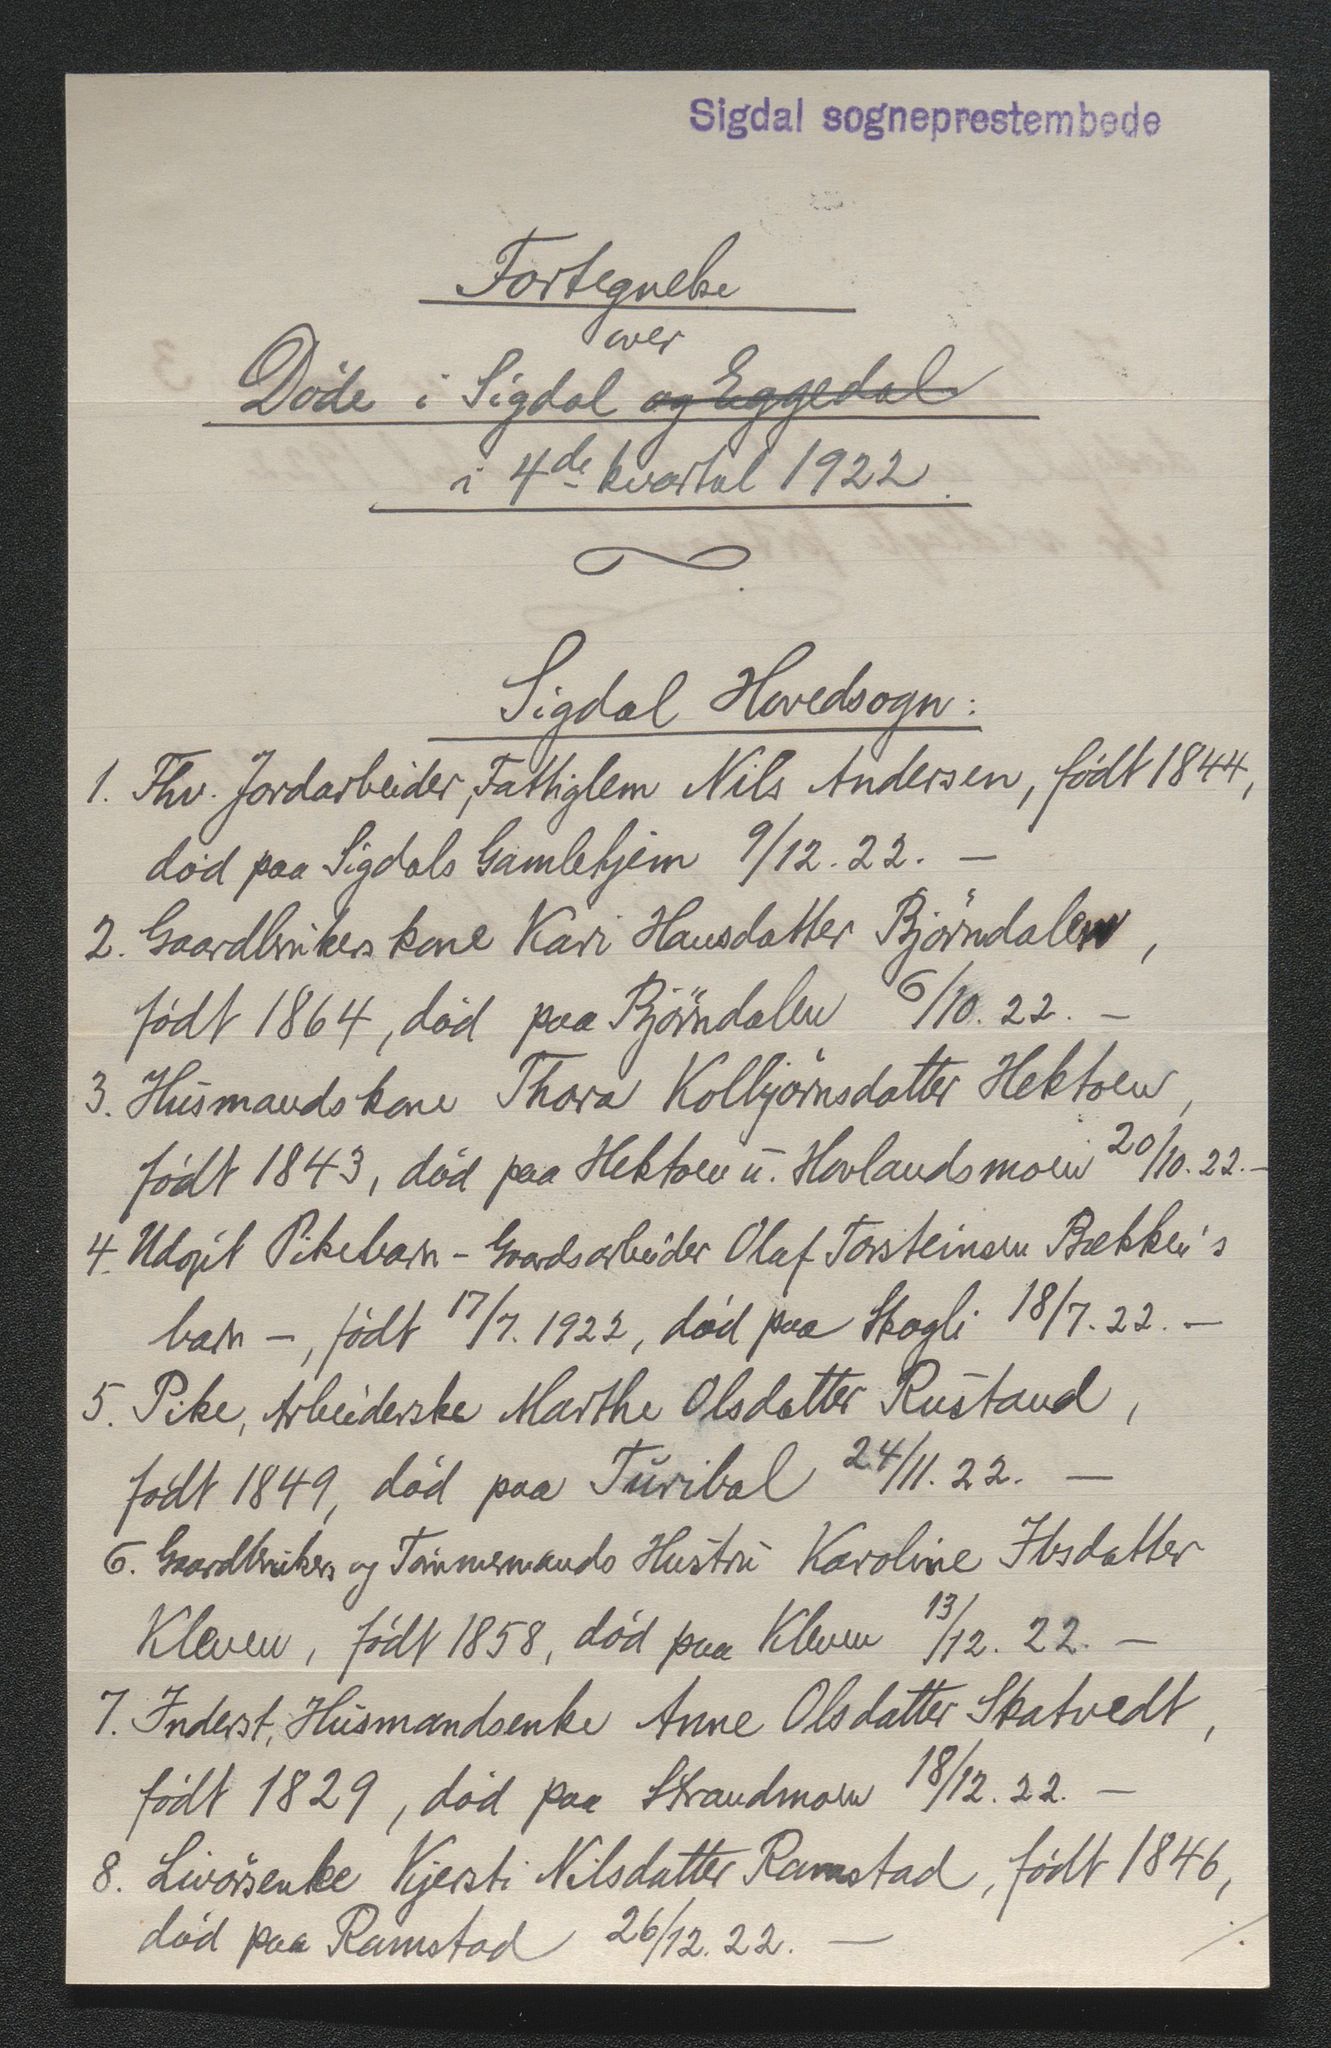 Sigdal sogneprestembede
Fortegnelse
over
Døde i Sigdal og Eggedal
i 4de kvartal 1922.
Sigdal Hovedsogn:
1. Fhv. Jordarbeider, Fattiglem Nils Andersen, født 1844,
død paa Sigdals Gamlehjem 9/12. 22. —
2. Gaardbrukerskone Kari Hansdatter Bjørndalen,
født 1864, død paa Bjørndalen 6/10. 22. —
3. Husmandskone Thora Kolbjørnsdatter Hektoen,
født 1843, død paa Hektoen u. Hovlandsmoen 20/10. 22. —
4. Udøpt Pikebarn - Gaardsarbeider Olaf Torsteinsen Bækken's
barn —, født 17/7. 1922, død paa Skogli 18/7. 22. —
5. Pike, Arbeiderske Marthe Olsdatter Rustand,
født 1849, død paa Turibal 24/11. 22. —
6. Gaardbrukers og Tømmermands Hustru Karoline Ibsdatter
Kleven, født 1858, død paa Kleven 13/12. 22. —
7. Inderst, Husmandsenke Anne Olsdatter Skatvedt,
født 1829, død paa Strandmoen 18/12. 22. —
8. Livørsenke Kjersti Nilsdatter Ramstad, født 1846,
død paa Ramstad 26/12. 22. —
./.